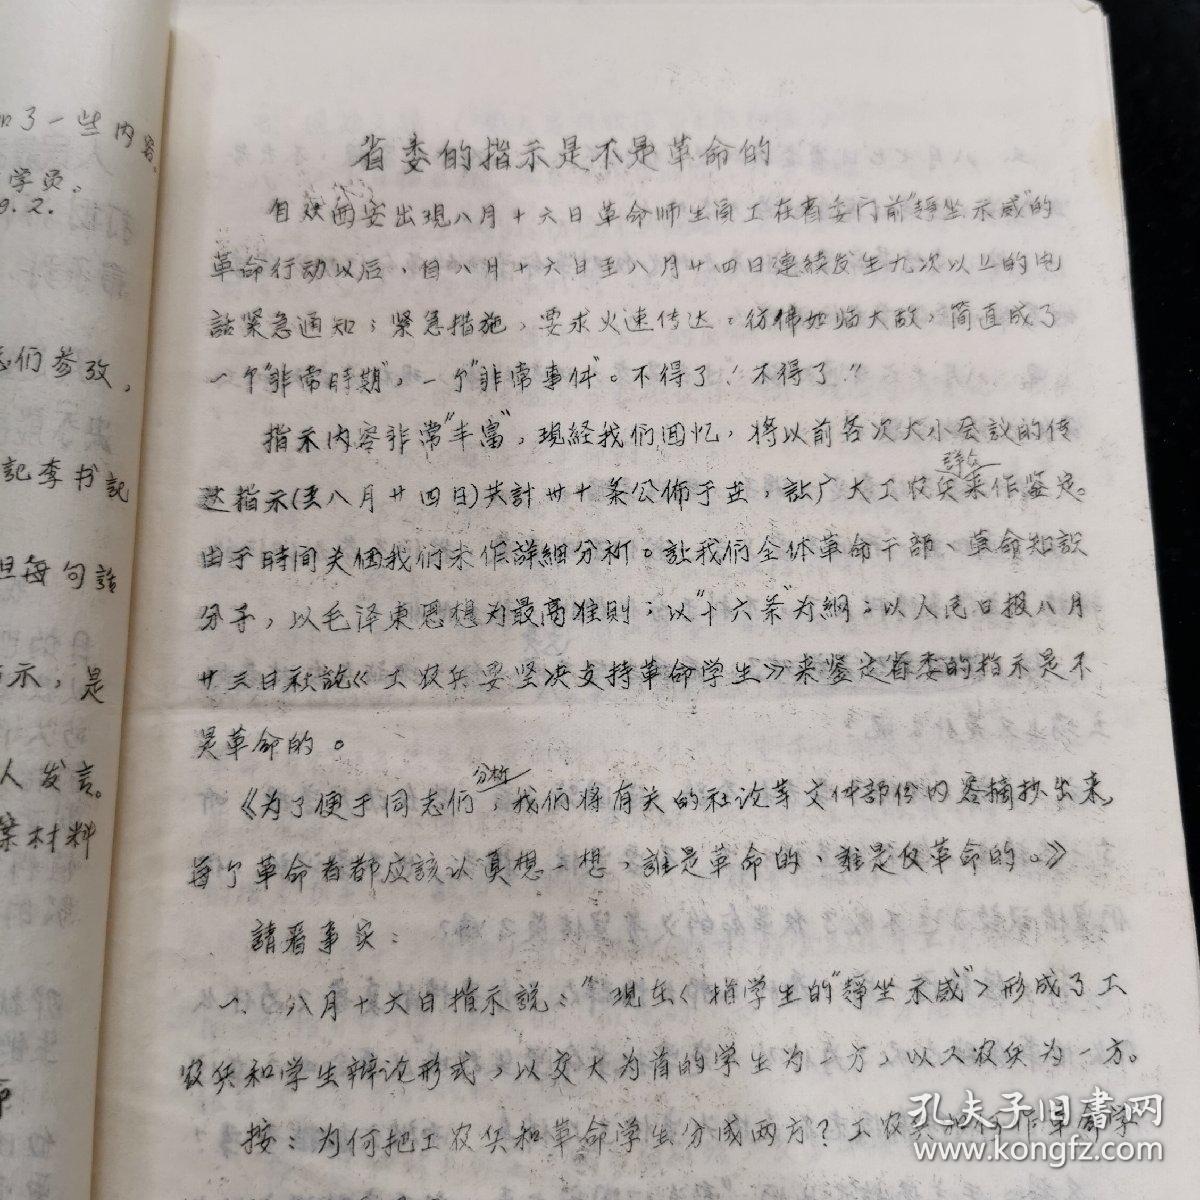 如了一些内容。
学员。
9.2.
志们参考,
記李书記
但每句話
示,是
人发言。
案材料
省委的指示是不是革命的
自从西安出現八月十六日革命师生員工在省委门前"靜坐示威"的
革命行动以后,自八月十六日至八月廿四日連続发生九次以上的电
話緊急通知;緊急措施,要求火速传达。彷彿如临大敌,简直成了
一个"非常時期",一个"非常事件"。不得了!不得了!!
指示内容非常"丰富",現経我们回忆,将以前各次大小会议的传
达指示(至八月廿四日)共計卅十条公佈于
群众
,訁广大工农兵来作鉴定。
由于時間关係我们未作詳細分析。訁我们全体革命干部、革命知識
分子,以毛泽東思想为最高准则;以"十六条"为綱;以人民日报八月
廿三日社說《工农兵要坚决支持革命学生》来鉴定省委的指示是不
是革命的。
分析
《为了便于同志们,我们将有关的社论等文件部份内容摘抄出来,
每个革命者都应該认真想一想,誰是革命的,誰是反革命的。》
請看事实:
一、八月十六日指示說:"現在<指学生的"靜坐示威">形成了工
农兵和学生辯论形式,以交大为首的学生为一方,以工农兵为一方。
按:为何把工农兵和革命学生分成两方?工农兵
革命学
孔夫子旧書网
www.kongfz.com